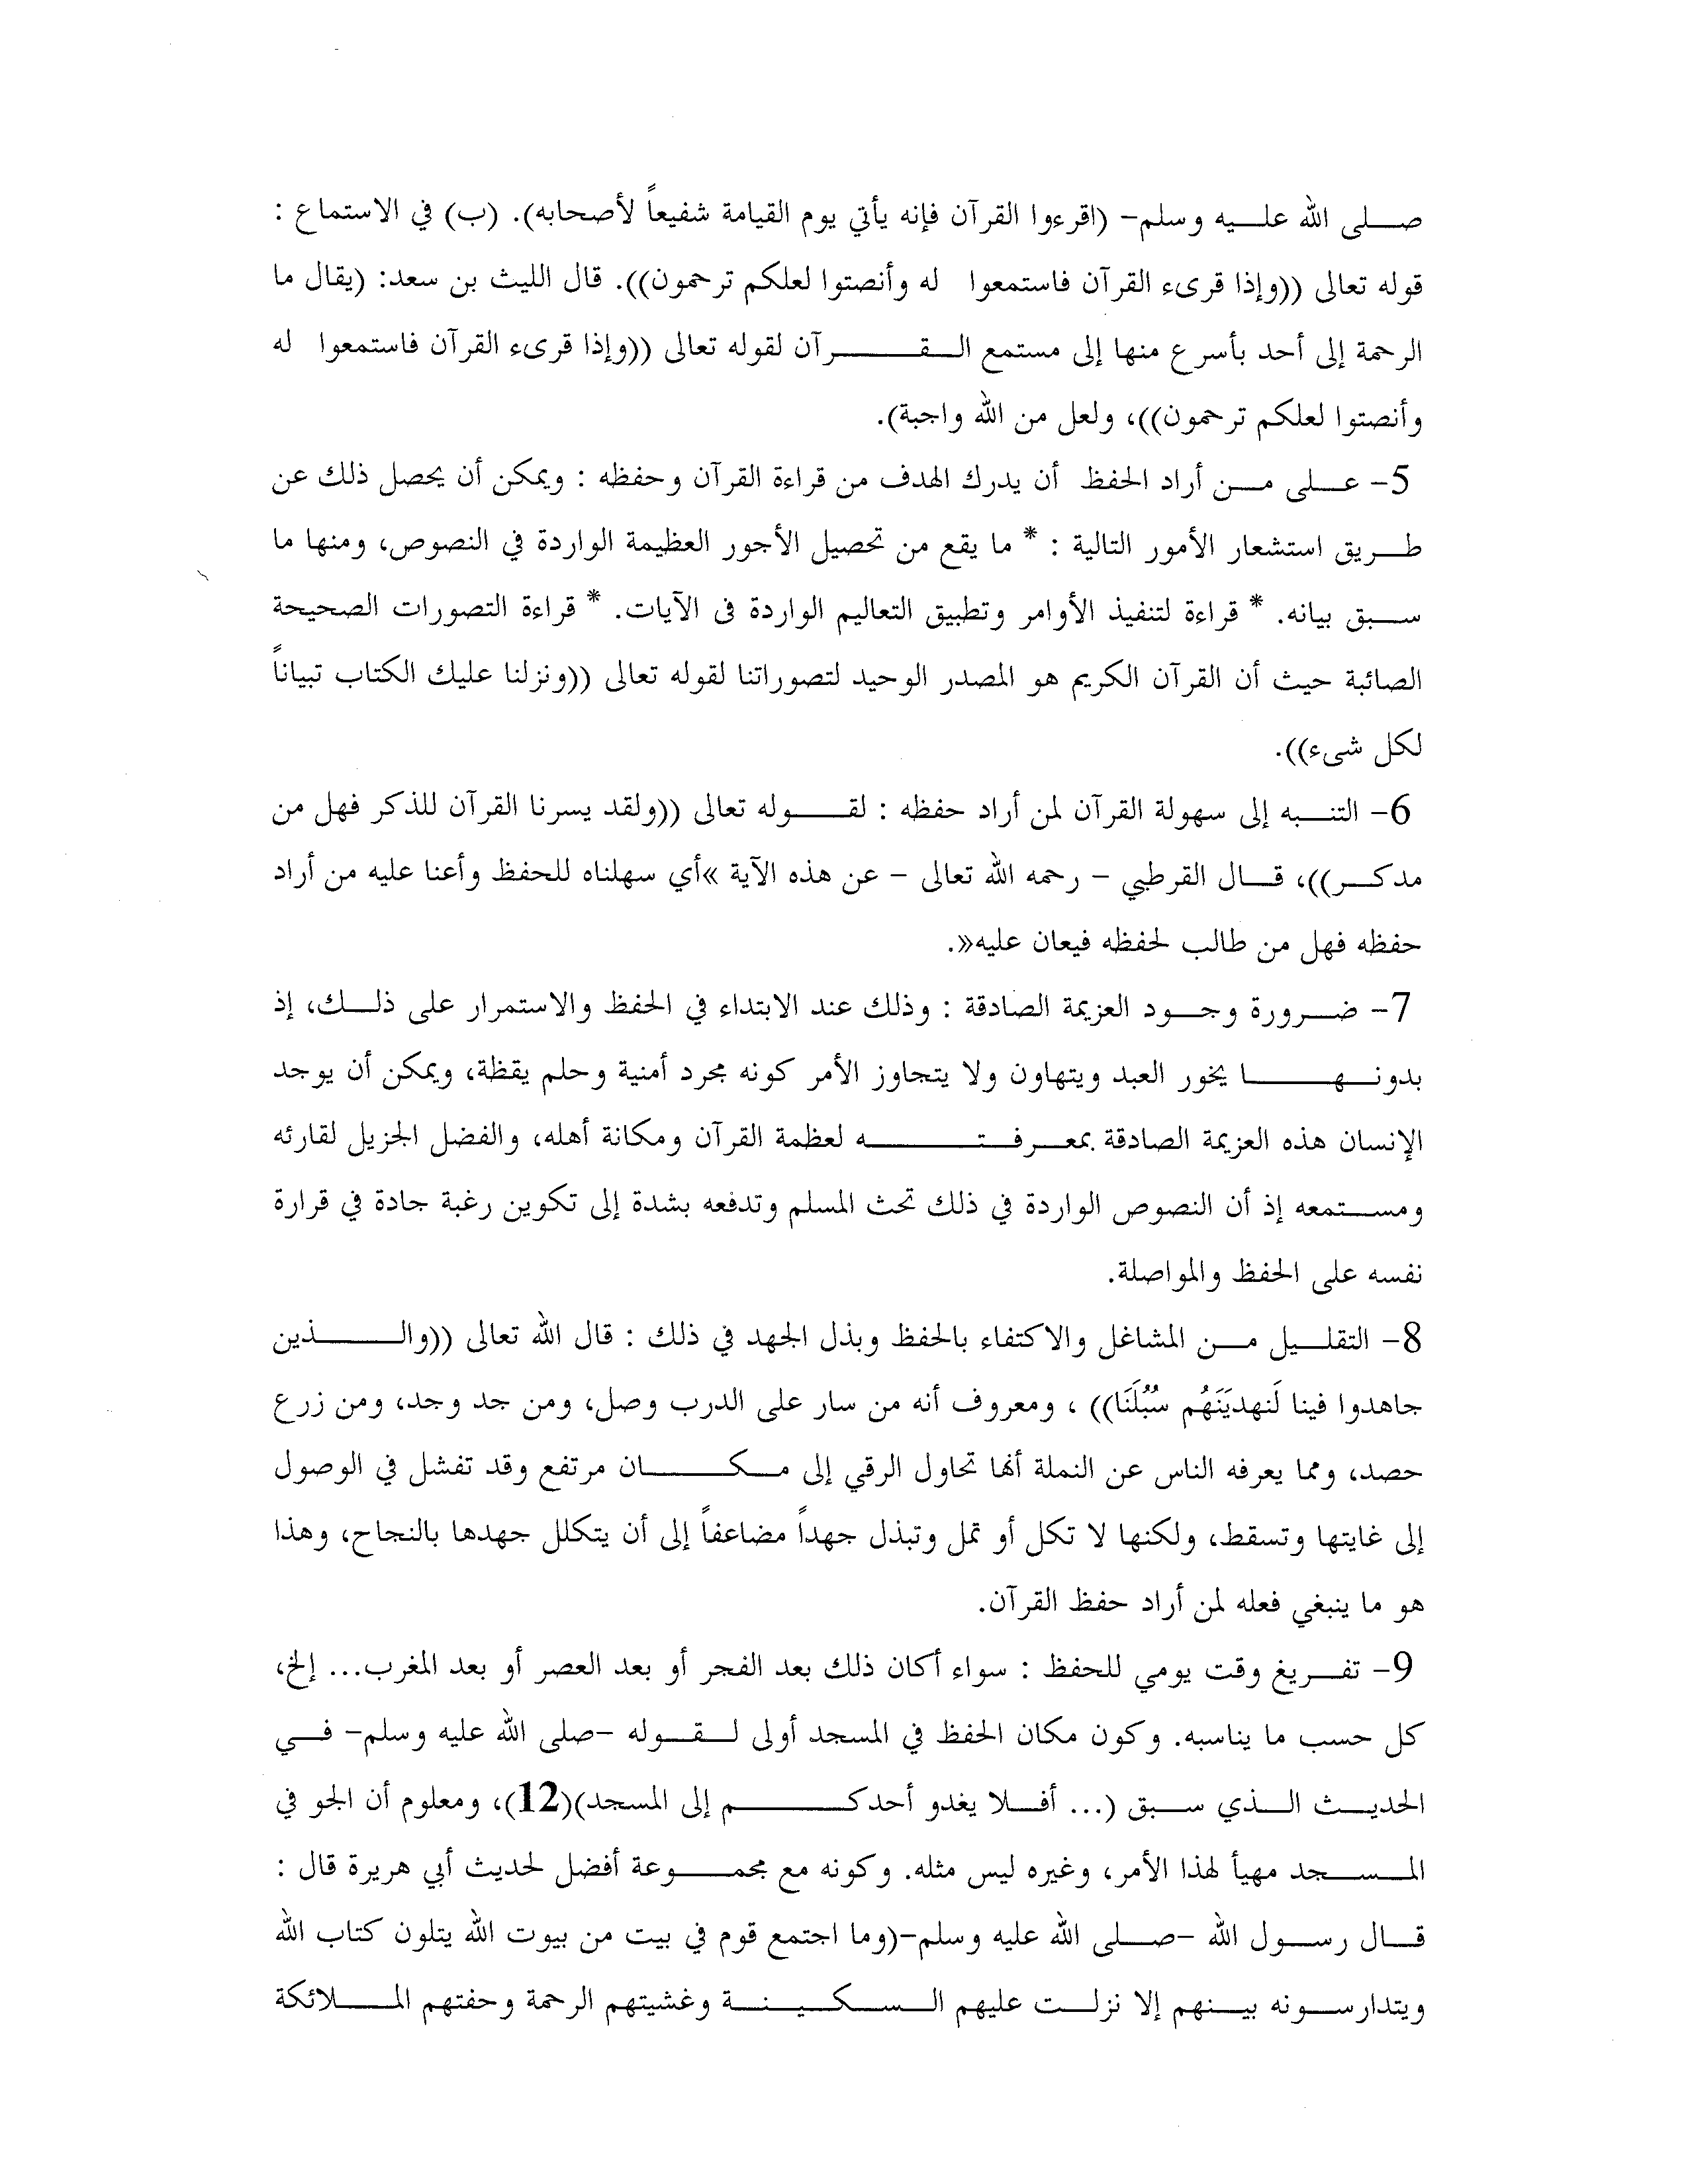 صلى الله عليه وسلم- (اقرءوا القرآن فإنه يأتي يوم القيامة شفيعاً لأصحابه). (ب) في الاستماع :
قوله تعالى ((وإذا قرىء القرآن فاستمعوا له وأنصتوا لعلكم ترحمون)). قال الليث بن سعد: (يقال ما
الرحمة إلى أحد بأسرع منها إلى مستمع القرآن لقوله تعالى ((وإذا قرىء القرآن فاستمعوا له
وأنصتوا لعلكم ترحمون))، ولعل من الله واجبة).
5- على من أراد الحفظ أن يدرك الهدف من قراءة القرآن وحفظه : ويمكن أن يحصل ذلك عن
طريق استشعار الأمور التالية : * ما يقع من تحصيل الأجور العظيمة الواردة في النصوص، ومنها ما
سبق بيانه. * قراءة لتنفيذ الأوامر وتطبيق التعاليم الواردة فى الآيات. * قراءة التصورات الصحيحة
الصائبة حيث أن القرآن الكريم هو المصدر الوحيد لتصوراتنا لقوله تعالى ((ونزلنا عليك الكتاب تبياناً
لكل شىء)).
6- التنبه إلى سهولة القرآن لمن أراد حفظه : لقوله تعالى ((ولقد يسرنا القرآن للذكر فهل من
مدكر))، قال القرطبي - رحمه الله تعالى - عن هذه الآية »أي سهلناه للحفظ وأعنا عليه من أراد
حفظه فهل من طالب لحفظه فيعان عليه«.
7- ضرورة وجود العزيمة الصادقة : وذلك عند الابتداء في الحفظ والاستمرار على ذلك، إذ
بدونها يخور العبد ويتهاون ولا يتجاوز الأمر كونه مجرد أمنية وحلم يقظة، ويمكن أن يوجد
الإنسان هذه العزيمة الصادقة بمعرفته لعظمة القرآن ومكانة أهله، والفضل الجزيل لقارئه
ومستمعه إذ أن النصوص الواردة في ذلك تحث المسلم وتدفعه بشدة إلى تكوين رغبة جادة في قرارة
نفسه على الحفظ والمواصلة.
8- التقليل من المشاغل والاكتفاء بالحفظ وبذل الجهد في ذلك : قال الله تعالى ((والذين
جاهدوا فينا لَنهديَنَهُم سُبُلَنَا)) ، ومعروف أنه من سار على الدرب وصل، ومن جد وجد، ومن زرع
حصد، ومما يعرفه الناس عن النملة أنها تحاول الرقي إلى مكان مرتفع وقد تفشل في الوصول
إلى غايتها وتسقط، ولكنها لا تكل أو تمل وتبذل جهداً مضاعفاً إلى أن يتكلل جهدها بالنجاح، وهذا
هو ما ينبغي فعله لمن أراد حفظ القرآن.
9- تفريغ وقت يومي للحفظ : سواء أكان ذلك بعد الفجر أو بعد العصر أو بعد المغرب... إلخ،
كل حسب ما يناسبه. وكون مكان الحفظ في المسجد أولى لقوله -صلى الله عليه وسلم- في
الحديث الذي سبق (... أفلا يغدو أحدكم إلى المسجد)(12)، ومعلوم أن الجو في
المسجد مهيأ لهذا الأمر، وغيره ليس مثله. وكونه مع مجموعة أفضل لحديث أبي هريرة قال :
قال رسول الله -صلى الله عليه وسلم-(وما اجتمع قوم في بيت من بيوت الله يتلون كتاب الله
ويتدارسونه بينهم إلا نزلت عليهم السكينة وغشيتهم الرحمة وحفتهم الملائكة